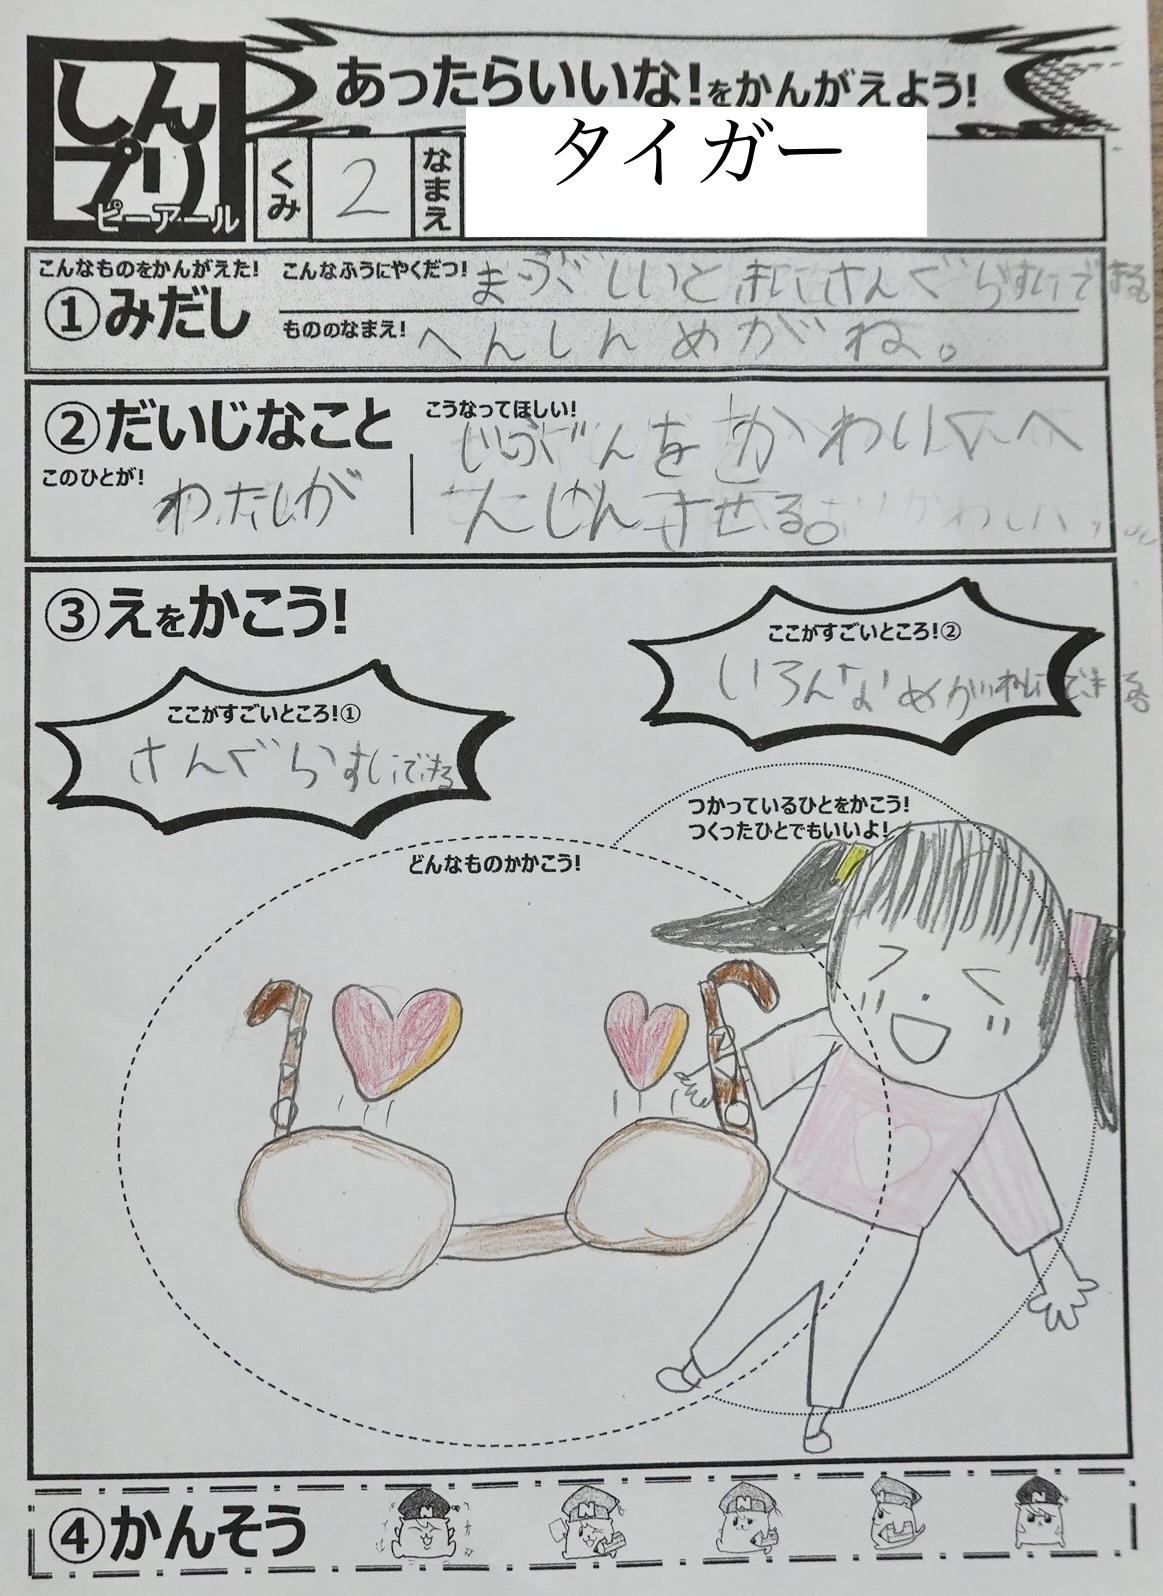 しん
プリ
ピーアール
あったらいいな!をかんがえよう!
くみ
2
なまえ
タイガー
こんなものをかんがえた!
①みだし
こんなふうにやくだつ!
まぶしいときにさんぐらすにできる
もののなまえ!
へんしんめがね。
②だいじなこと
このひとが!
わたしが
こうなってほしい!
じぶんをかわいくへ
んしんさせる。
③えをかこう!
ここがすごいところ!①
さんぐらすにできる
ここがすごいところ!②
いろんなめがねにできる
つかっているひとをかこう!
つくったひとでもいいよ!
どんなものかかこう!
④かんそう
N
N
N
N